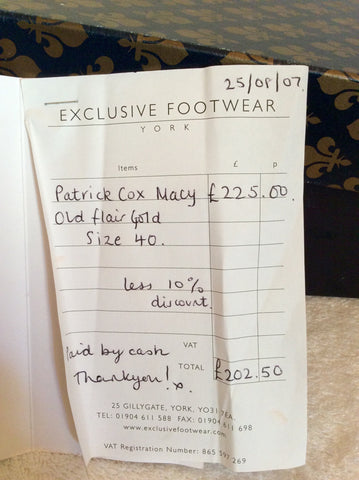 25/08/07
EXCLUSIVE FOOTWEAR
YORK
Items £ p
Patrick Cox Macy £225.00.
Old flair Gold
Size 40.
less 10%
discount.
Paid by cash VAT
Thankyou! x. TOTAL £202.50
25 GILLYGATE, YORK, YO31 7EA.
TEL: 01904 611 588 FAX: 01904 611 698
www.exclusivefootwear.com
VAT Registration Number: 865 269